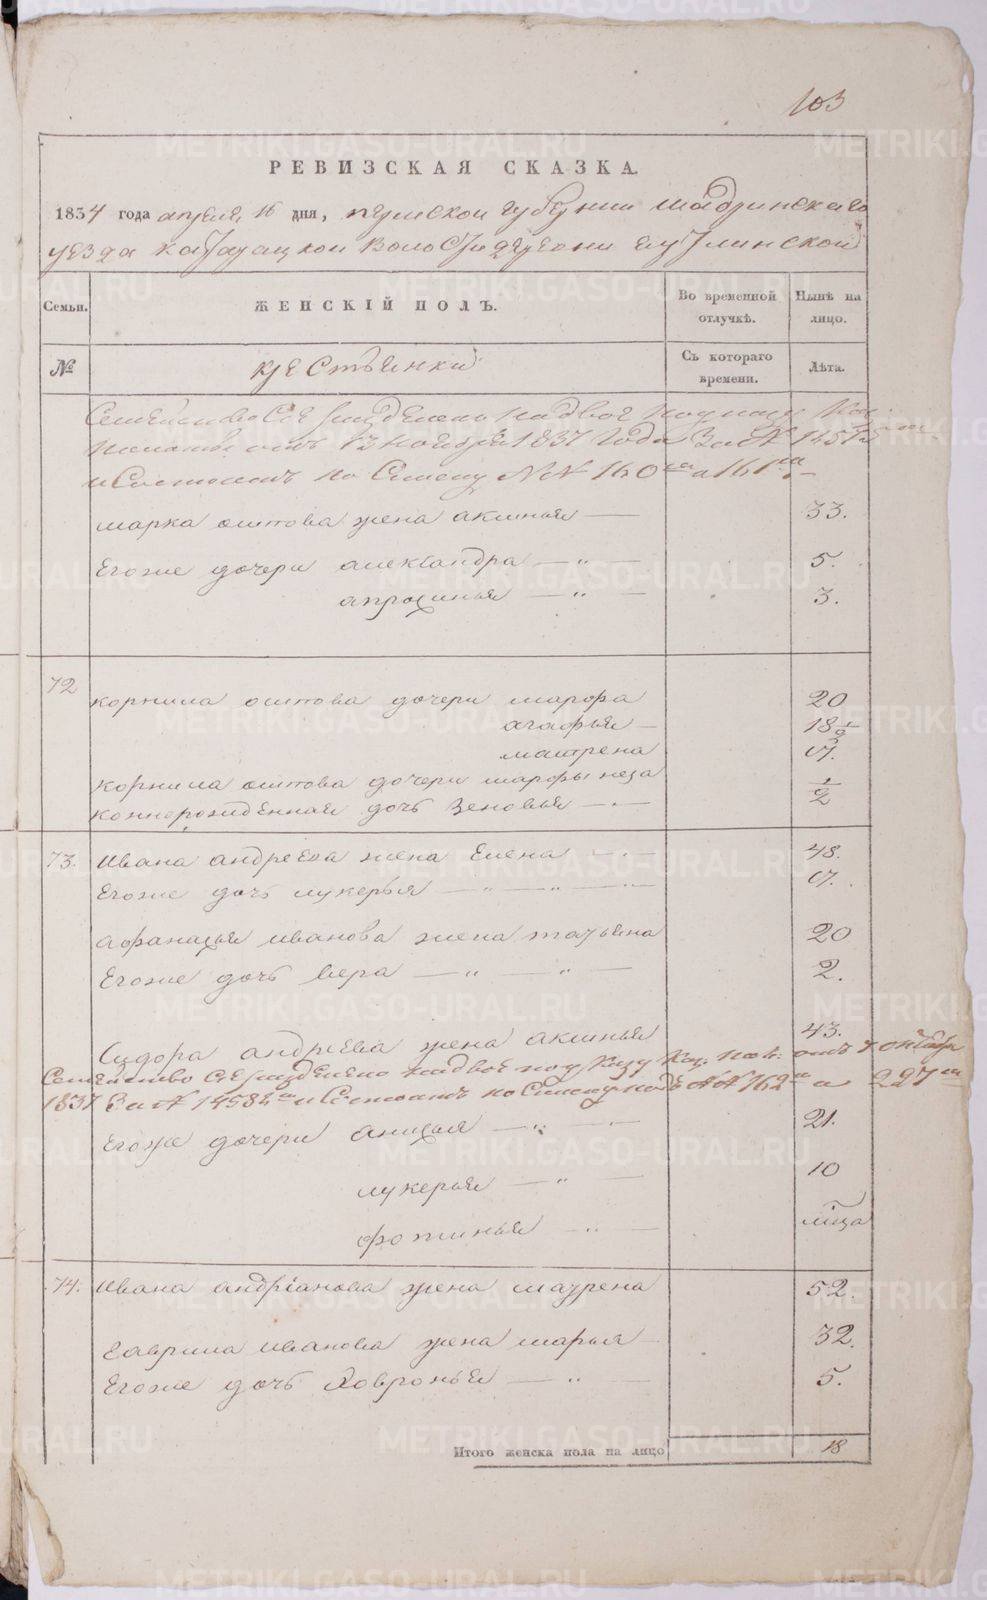 103
РЕВИЗСКАЯ СКАЗКА.
1834 года апреля 16 дня, пермской губернии Шадринскаго
уезда Катайацкой волости деревни
Семьи.
ЖЕНСКІЙ ПОЛЪ.
Во временной отлучкѣ.
Нынѣ на лицо.
№
крестьянки
Съ котораго времени.
Лѣта.
Семейство сіе разделено надвое по указу Каз.
Палаты отъ 12 ноября 1837 года За № 14515
и Состоитъ по Списку №№ 160 и 161
марка осипова жена аксинья — 33.
Егоже дочери александра — „ — 5.
апросинья — „ — 3.
72
корнила осипова дочери марфа 20
агафья — 18 1/2
матрена 17.
корнила осипова дочери марфы неза
коннорожденная дочь Зеновья — 1/2
73. Ивана андреева жена Елена — 48.
Егоже дочь лукерья — „ — „ — 17.
афанасья иванова жена татьяна 20
Егоже дочь вера — „ — „ — 2.
Сидора андреева жена аксинья 43.
Семейство сіе разделено надвое по указу Каз. пал. отъ октября
1837 За № 14582 и Состоитъ по Списку подъ №№ 162 и 227
Егоже дочери анисья — „ — 21.
лукерья — „ — 10
фотинья — „ —
74. Ивана андріанова жена мавррена 52.
Гаврила иванова жена марья — 32.
Егоже дочь Ховронья — „ — 5.
Итого женска пола на лицо 18
METRIKI.GASO-URAL.RU